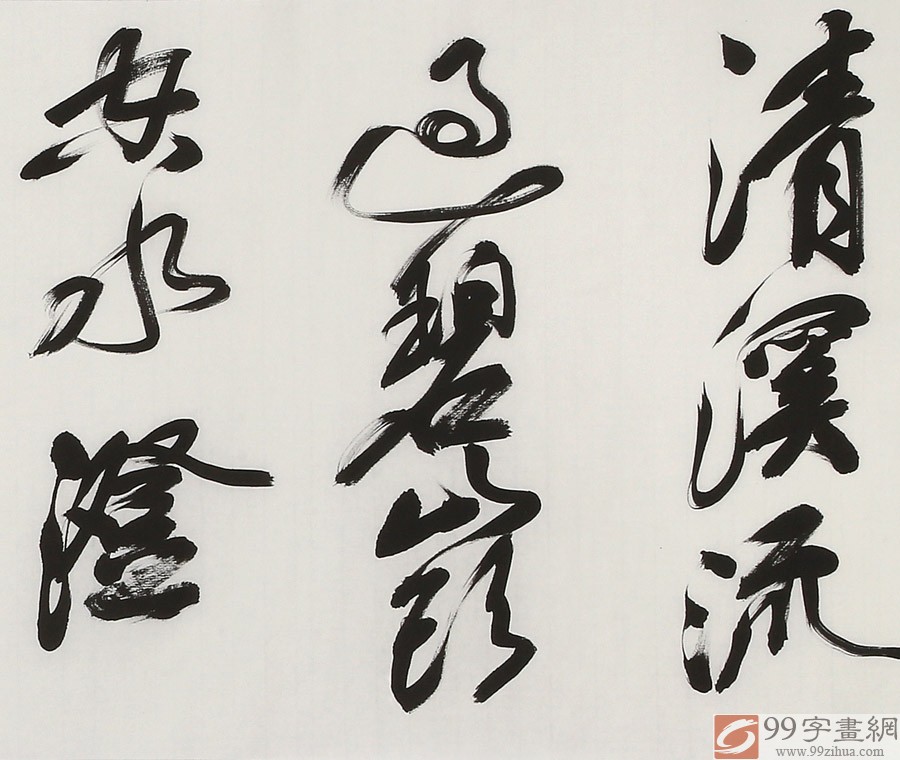 清溪流
過碧嶺
安水澄
99字畫網
www.99zihua.com